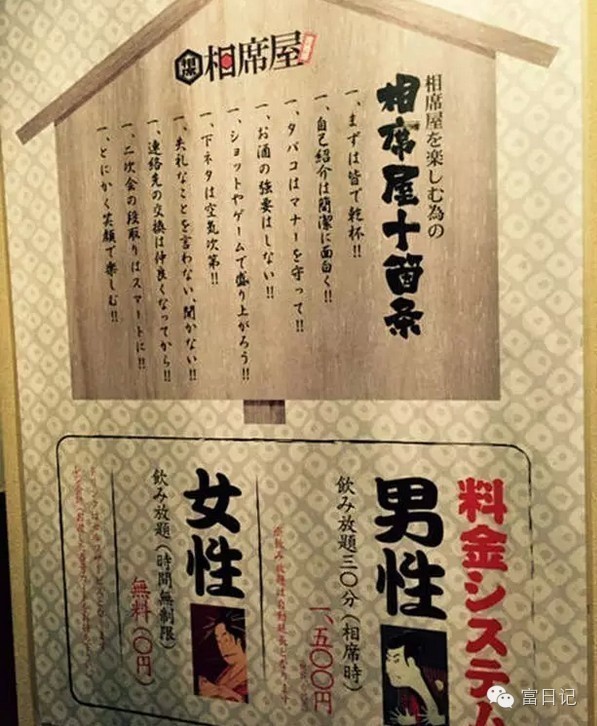 相席
相席屋
相席屋を楽しむ為の
相席屋十箇条
一、まずは皆で乾杯!!
一、自己紹介は簡潔に面白く!!
一、タバコはマナーを守って!!
一、お酒の強要はしない!!
一、ショットやゲームで盛り上がろう!!
一、下ネタは空気次第!!
一、失礼なことを言わない、聞かない!!
一、連絡先の交換は仲良くなってから!!
一、二次会の段取りはスマートに!!
一、とにかく笑顔で楽しむ!!
料金システム
男性
飲み放題三〇分(相席時)
一、五〇〇円
女性
飲み放題(時間無制限)
無料(〇円)
富日记